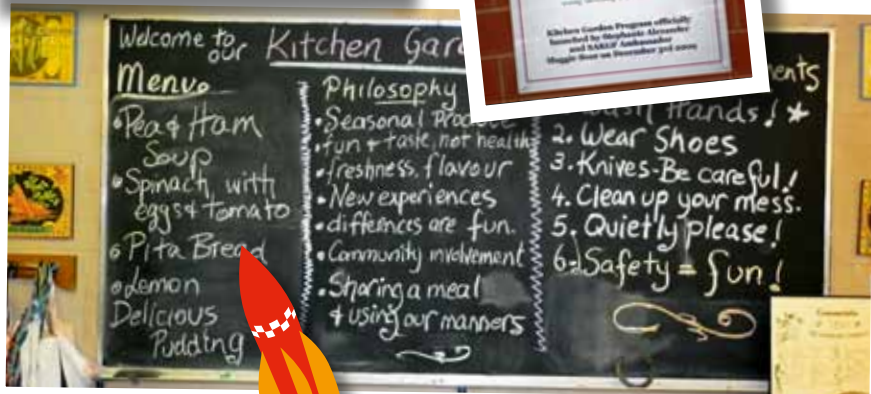 Welcome to our Kitchen Gar
Menu
•Pea & Ham
Soup
•Spinach with
eggs & Tomato
• Pita Bread
• Lemon
Delicious
Pudding
Philosophy
• Seasonal Produce
• fun & taste, not health
• freshness, flavour
• New experiences
• differnces are fun.
• Community involvement
• Sharing a meal
& using our manners
ents
Wash Hands! *
2. Wear Shoes
3. Knives-Be careful!
4. Clean up your mess.
5. Quietly please!
6. Safety = fun!
Kitchen Garden Program officially
launched by Stephanie Alexander
and SAKGF Ambassador
Maggie Beer on December 3rd